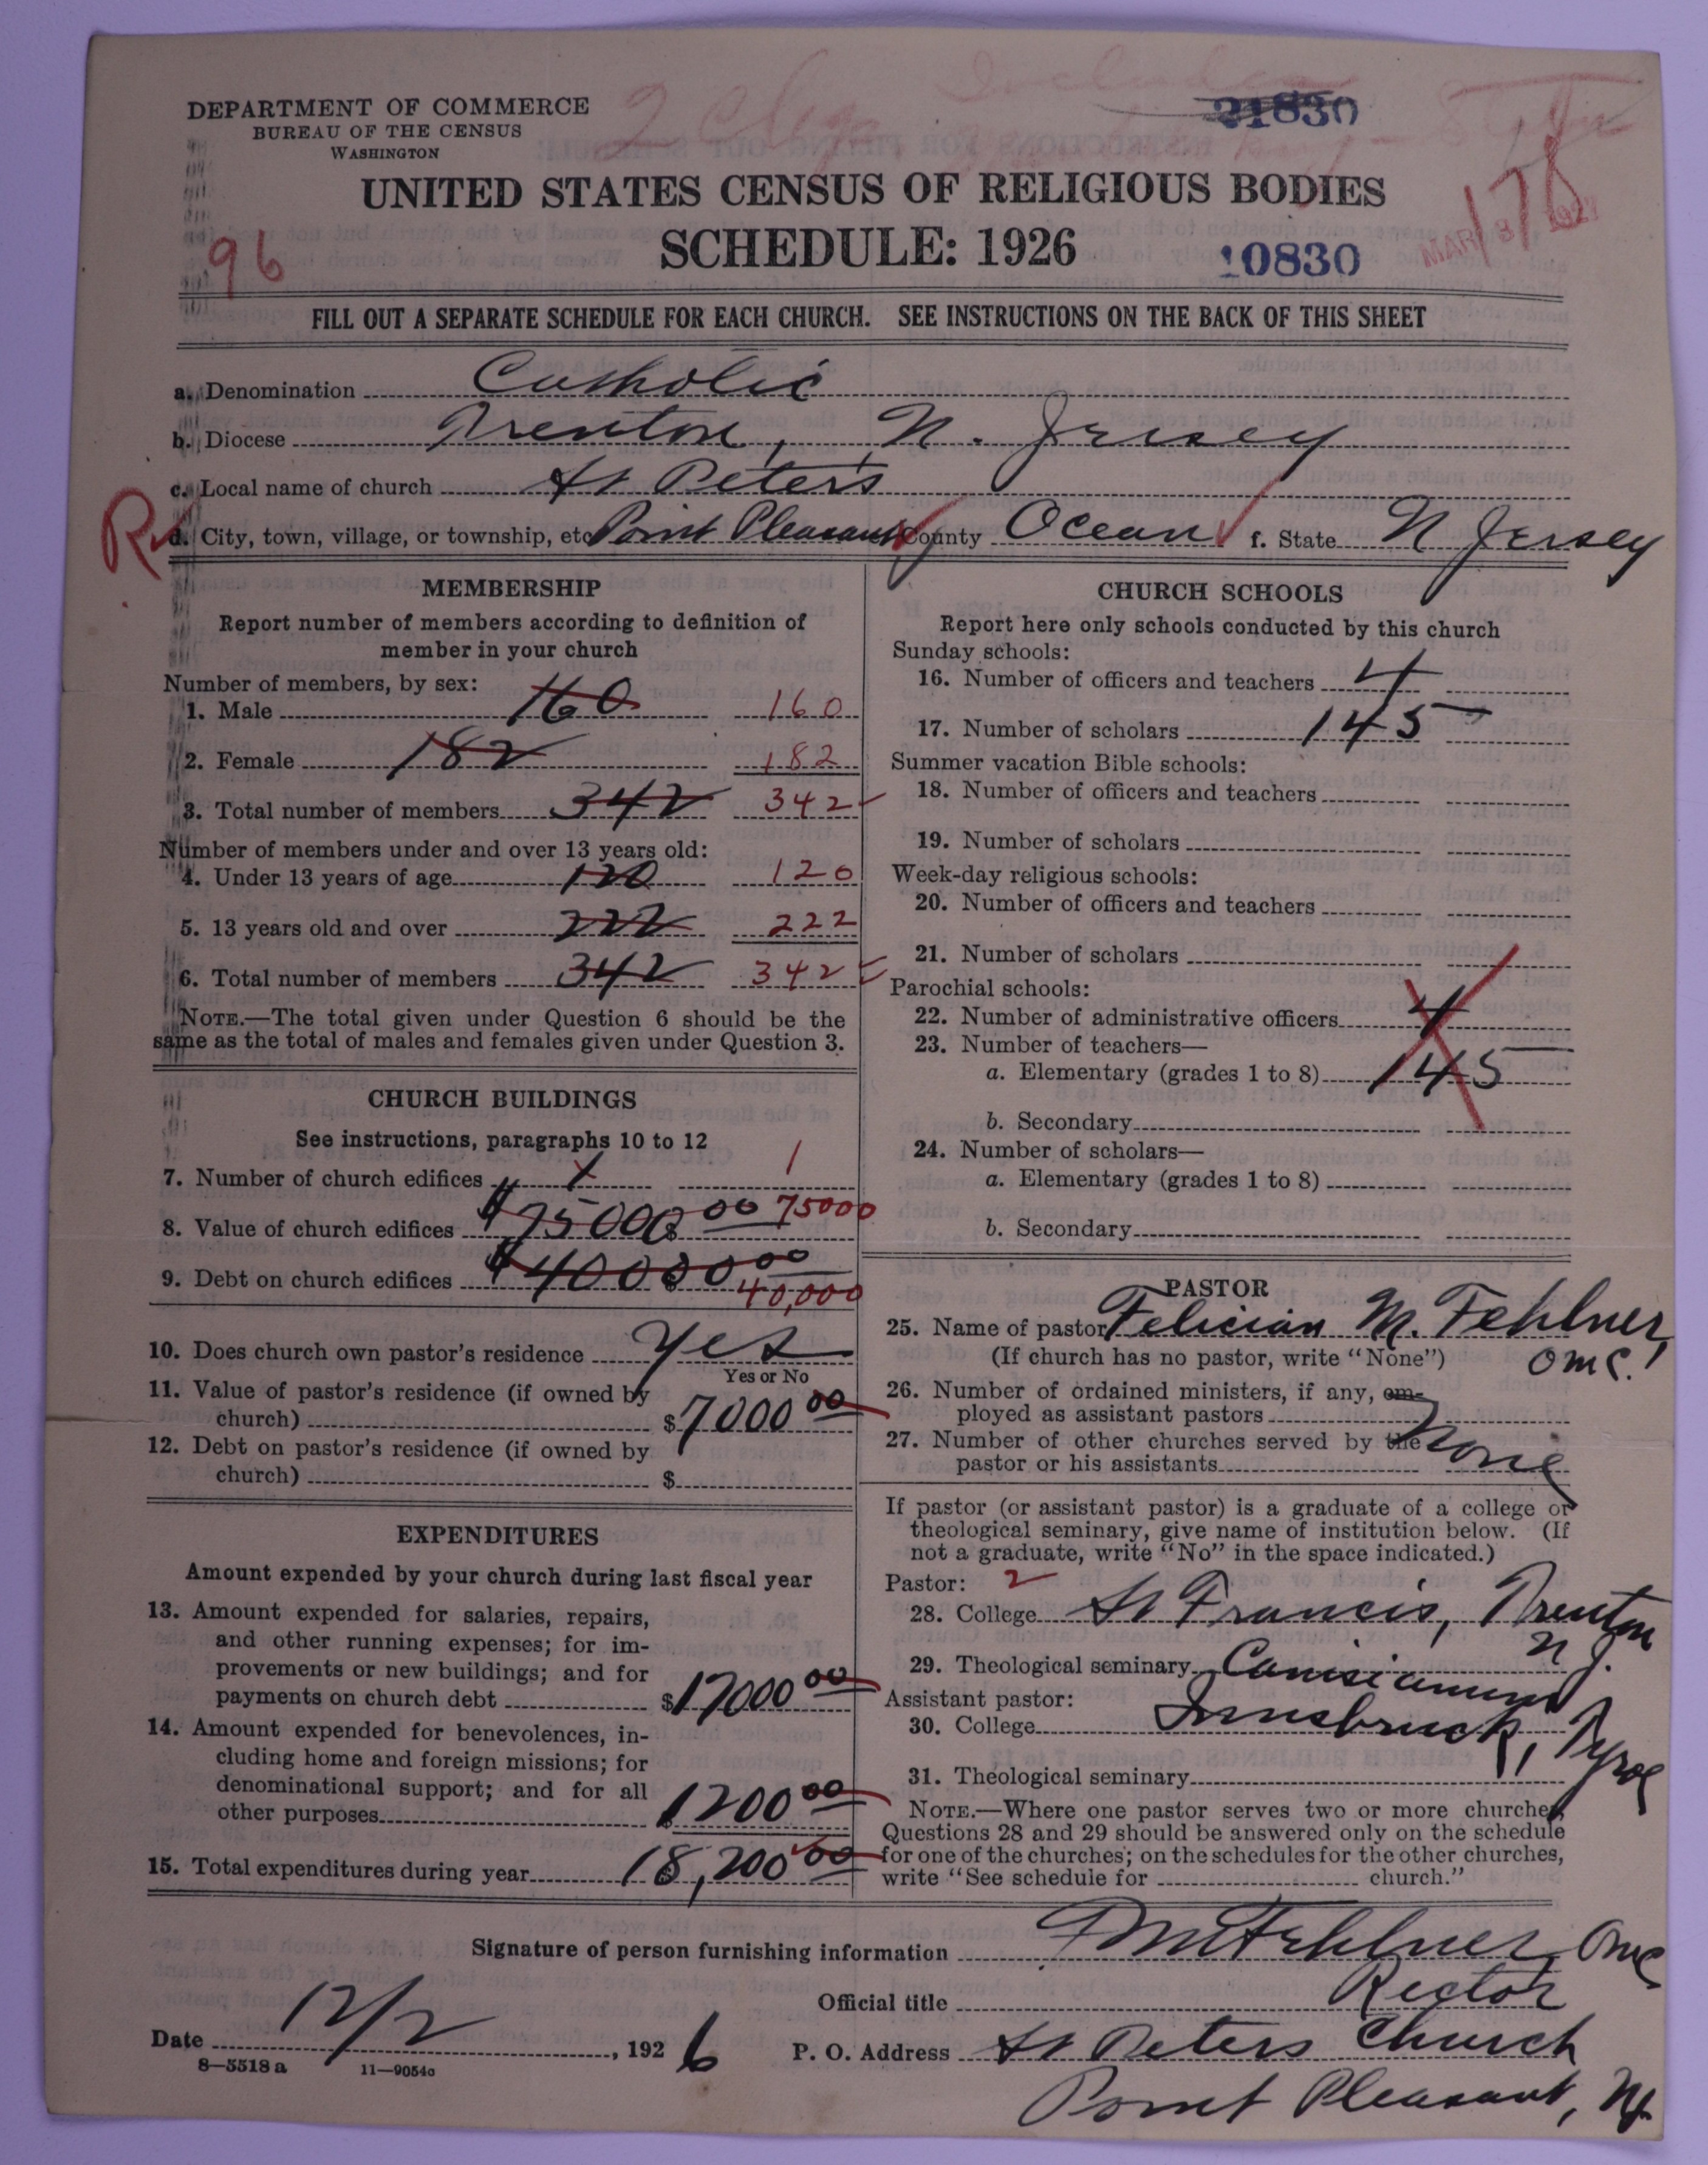 DEPARTMENT OF COMMERCE
BUREAU OF THE CENSUS
WASHINGTON
21830
UNITED STATES CENSUS OF RELIGIOUS BODIES
SCHEDULE: 1926
96
10830
178
MAR 8 1927
FILL OUT A SEPARATE SCHEDULE FOR EACH CHURCH. SEE INSTRUCTIONS ON THE BACK OF THIS SHEET
a. Denomination Catholic
b. Diocese Trenton, N. Jersey
c. Local name of church St Peter's
R d. City, town, village, or township, etc Point Pleasant County Ocean f. State N Jersey
MEMBERSHIP
Report number of members according to definition of
member in your church
Number of members, by sex:
1. Male 160 160
2. Female 182 182
3. Total number of members 342 342
Number of members under and over 13 years old:
4. Under 13 years of age 120 120
5. 13 years old and over 222 222
6. Total number of members 342 342
NOTE.—The total given under Question 6 should be the
same as the total of males and females given under Question 3.
CHURCH BUILDINGS
See instructions, paragraphs 10 to 12
7. Number of church edifices 1 1
8. Value of church edifices $75000 00 75000
9. Debt on church edifices $40000 00 40,000
10. Does church own pastor's residence Yes
Yes or No
11. Value of pastor's residence (if owned by
church) $7000 00
12. Debt on pastor's residence (if owned by
church) $
EXPENDITURES
Amount expended by your church during last fiscal year
13. Amount expended for salaries, repairs,
and other running expenses; for im-
provements or new buildings; and for
payments on church debt $17000 00
14. Amount expended for benevolences, in-
cluding home and foreign missions; for
denominational support; and for all
other purposes $1200 00
15. Total expenditures during year 18,200 00
CHURCH SCHOOLS
Report here only schools conducted by this church
Sunday schools:
16. Number of officers and teachers 4
17. Number of scholars 145
Summer vacation Bible schools:
18. Number of officers and teachers
19. Number of scholars
Week-day religious schools:
20. Number of officers and teachers
21. Number of scholars
Parochial schools:
22. Number of administrative officers 4
23. Number of teachers—
a. Elementary (grades 1 to 8) 145
b. Secondary
24. Number of scholars—
a. Elementary (grades 1 to 8)
b. Secondary
PASTOR
25. Name of pastor Felician M. Fehlner,
(If church has no pastor, write "None") OMC.
26. Number of ordained ministers, if any, em-
ployed as assistant pastors
27. Number of other churches served by the
pastor or his assistants none
If pastor (or assistant pastor) is a graduate of a college or
theological seminary, give name of institution below. (If
not a graduate, write "No" in the space indicated.)
Pastor: 2
28. College St Francis, Trenton
N J.
29. Theological seminary Canisianum
Assistant pastor:
30. College Innsbruck, Tyrol
31. Theological seminary
NOTE.—Where one pastor serves two or more churches,
Questions 28 and 29 should be answered only on the schedule
for one of the churches; on the schedules for the other churches,
write "See schedule for church."
Signature of person furnishing information FM Fehlner OMC
Official title Rector
Date 12/2, 1926
P. O. Address St Peters Church
Point Pleasant, NJ
8—5518 a 11—9054a